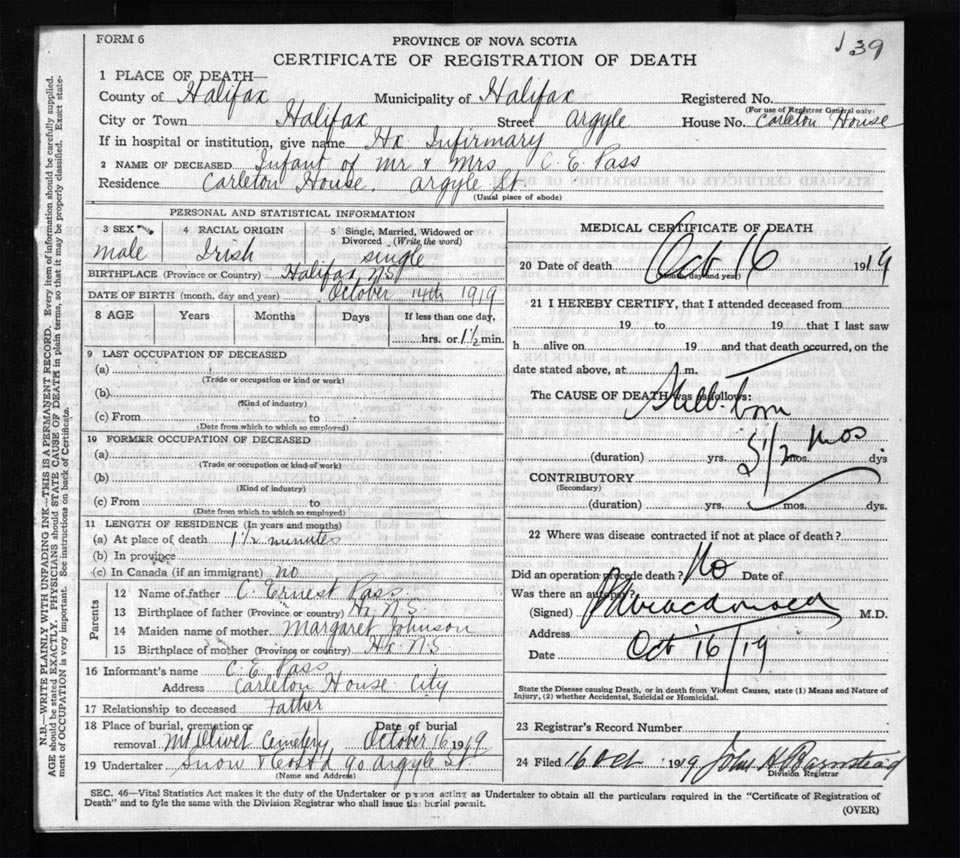 FORM 6
PROVINCE OF NOVA SCOTIA
139
CERTIFICATE OF REGISTRATION OF DEATH
1 PLACE OF DEATH—
County of Halifax Municipality of Halifax Registered No.
(For use of Registrar General only)
City or Town Halifax Street Argyle House No. Carleton House
If in hospital or institution, give name Hx. Infirmary
2 NAME OF DECEASED Infant of Mr & Mrs C. E. Pass
Residence Carleton House. Argyle St
(Usual place of abode)
PERSONAL AND STATISTICAL INFORMATION
3 SEX 4 RACIAL ORIGIN 5 Single, Married, Widowed or
Divorced (Write the word)
male Irish single
BIRTHPLACE (Province or Country) Halifax N.S.
DATE OF BIRTH (month, day and year) October 14th 1919
8 AGE Years Months Days If less than one day,
hrs. or 1½ min.
9 LAST OCCUPATION OF DECEASED
(a)
(Trade or occupation or kind or work)
(b)
(Kind of industry)
(c) From to
(Date from which to which so employed)
10 FORMER OCCUPATION OF DECEASED
(a)
(Trade or occupation or kind of work)
(b)
(Kind of industry)
(c) From to
(Date from which to which so employed)
11 LENGTH OF RESIDENCE (In years and months)
(a) At place of death 1½ minutes
(b) In province
(c) In Canada (if an immigrant) no
Parents
12 Name of father C. Ernest Pass
13 Birthplace of father (Province or country) Hx. N.S.
14 Maiden name of mother Margaret Johnson
15 Birthplace of mother (Province or country) Hx N.S
16 Informant's name C. E. Pass
Address Carleton House City
17 Relationship to deceased Father
18 Place of burial, cremation or Date of burial
removal Mt Olivet Cemetery October 16 1919
19 Undertaker Snow & Co Ltd 90 Argyle St
(Name and Address)
MEDICAL CERTIFICATE OF DEATH
20 Date of death Oct 16 1919
(Month, day and year)
21 I HEREBY CERTIFY, that I attended deceased from
19 to 19 that I last saw
h alive on 19 and that death occurred, on the
date stated above, at m.
The CAUSE OF DEATH was as follows:
Still-born
5 1/2 mos
(duration) yrs. mos. dys
CONTRIBUTORY
(Secondary)
(duration) yrs. mos. dys.
22 Where was disease contracted if not at place of death?
Did an operation precede death? No Date of
Was there an autopsy?
(Signed) M.D.
Address
Date Oct 16/19
State the Disease causing Death, or in death from Violent Causes, state (1) Means and Nature of
Injury, (2) whether Accidental, Suicidal or Homicidal.
23 Registrar's Record Number
24 Filed 16 Oct 1919 John H Barnstead
Division Registrar
SEC. 46—Vital Statistics Act makes it the duty of the Undertaker or person acting as Undertaker to obtain all the particulars required in the "Certificate of Registration of
Death" and to fyle the same with the Division Registrar who shall issue the burial permit.
(OVER)
N.B.—WRITE PLAINLY WITH UNFADING INK—THIS IS A PERMANENT RECORD. Every item of information should be carefully supplied.
AGE should be stated EXACTLY. PHYSICIANS should STATE CAUSE OF DEATH in plain terms, so that it may be properly classified. Exact state-
ment of OCCUPATION is very important. See instructions on back of Certificate.